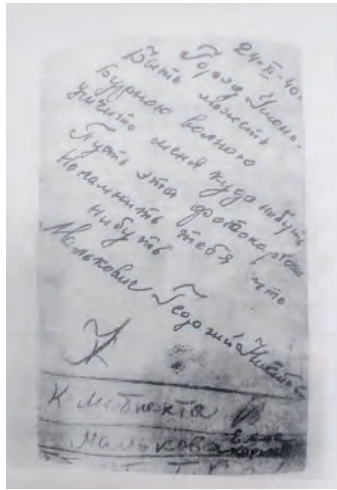 24-XI-40.
Город Умань.
Быть может
Бурною волною
умчить меня куда нибуть
Пусть эта фотокарточка
Напамнить тебя что
нибуть
Малькович Георгий
Малькова